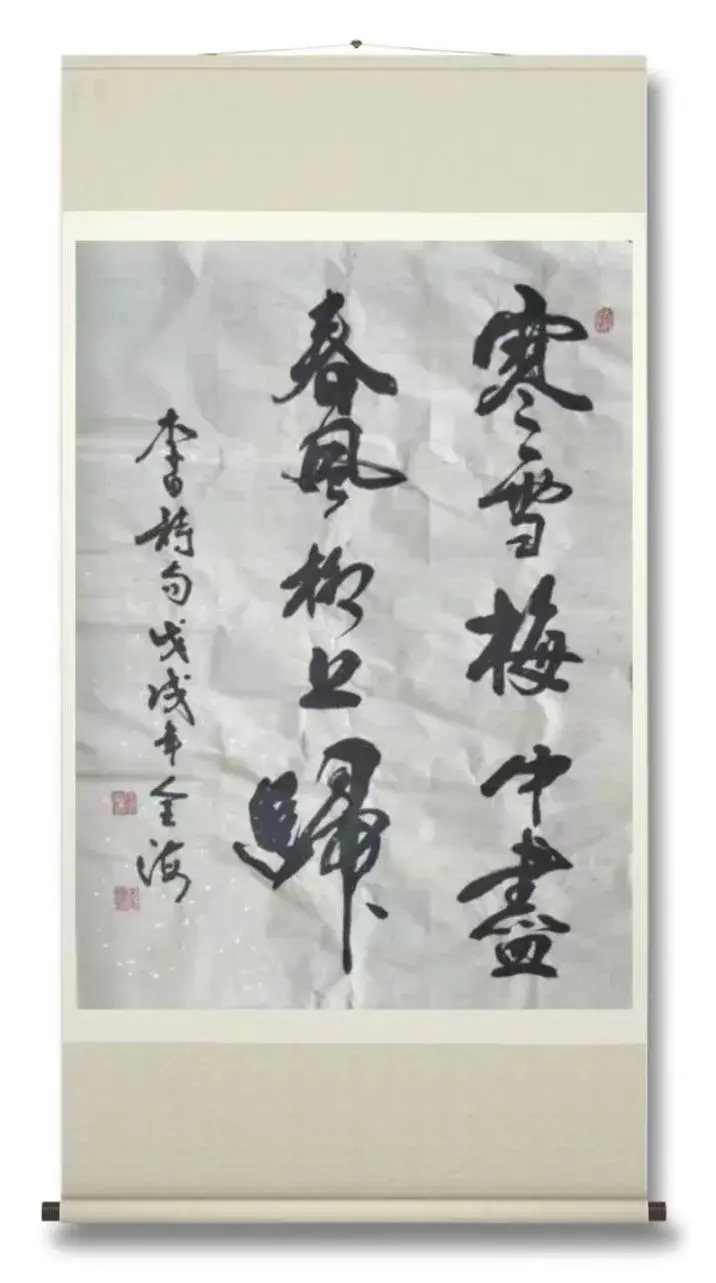 寒雪梅中盡
春風柳上歸
李白詩句戊戌年金海